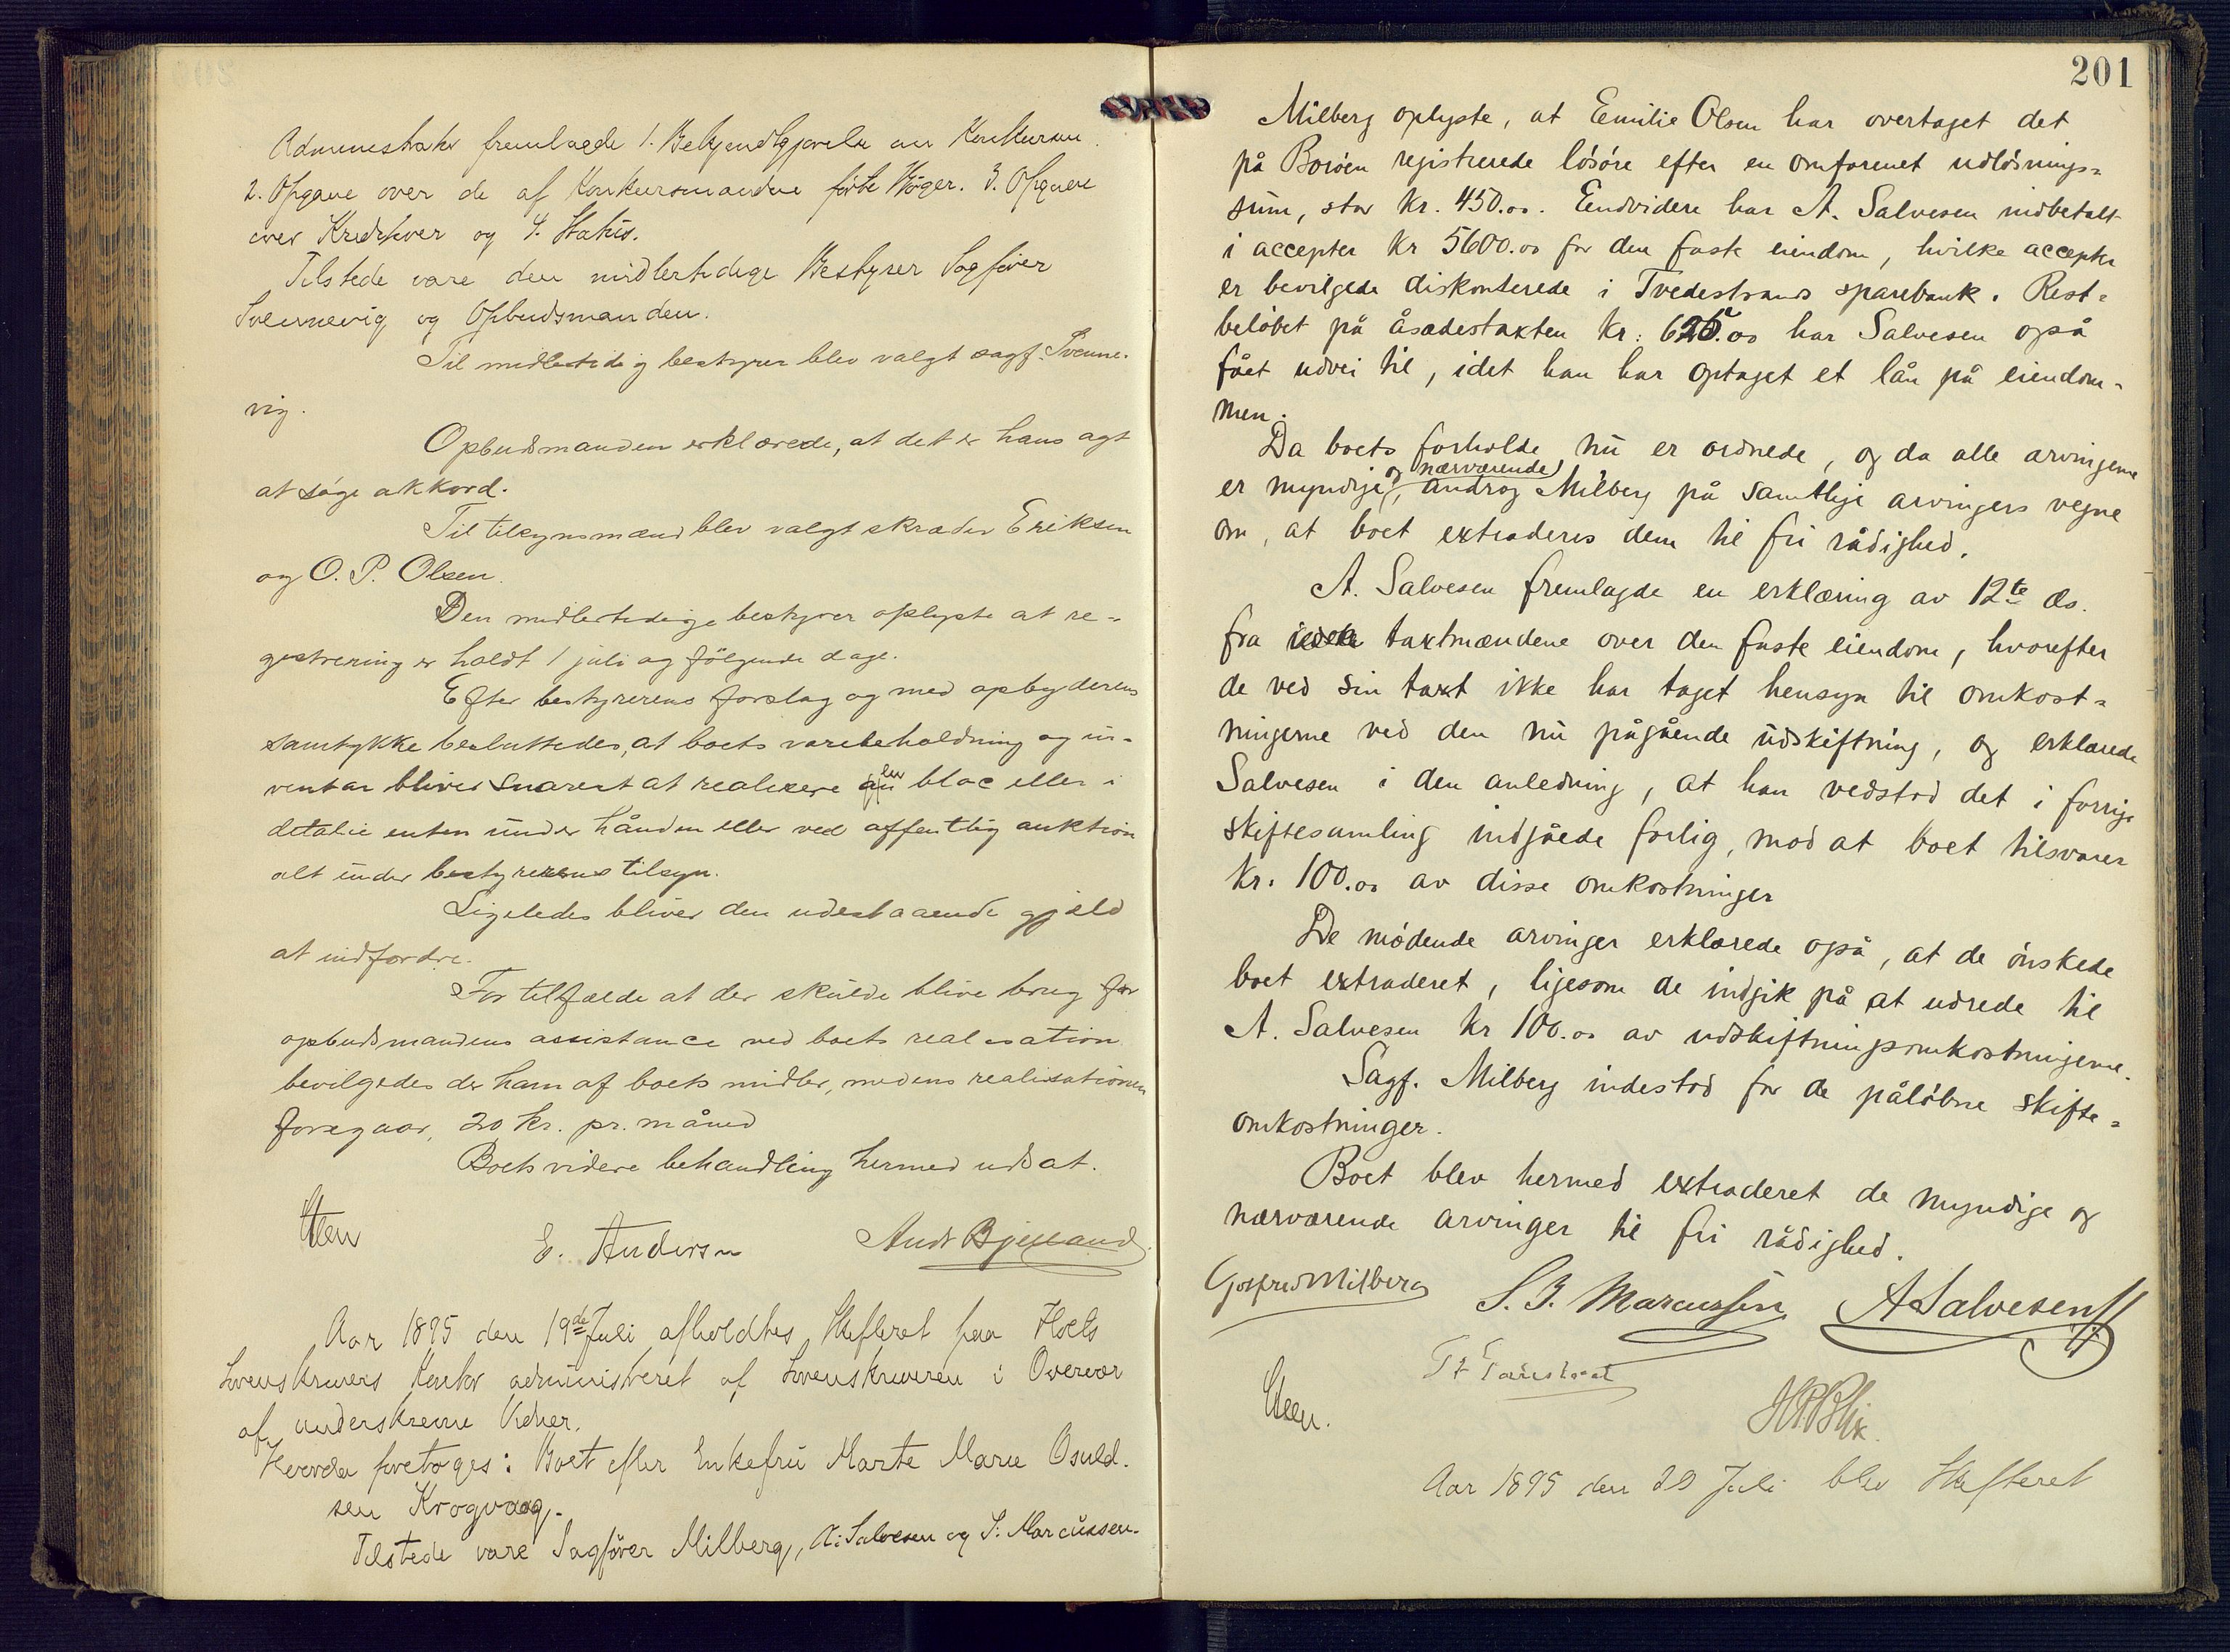 Administrator fremlagde 1. Bekjendtgjørelse om Konkursen.
2. Opgave over de af Konkursmanden førte Bøger. 3. Opgave
over Kreditorer og 4. Status.
Tilstede vare den midlertidige Bestyrer Sagfører
Svennevig og Opbudsmanden.
Til midlertidig bestyrer blev valgt sagf. Svenne-
vig.
Opbudsmanden erklærede, at det er hans agt
at søge akkord.
Til tilsynsmænd blev valgt skræder Eriksen
og O. P. Olsen.
Den midlertidige bestyrer oplyste at re-
gistrering er holdt 1 juli og følgende dage.
Efter bestyrerens forslag og med opbyderens
samtykke besluttedes, at boets varebeholdning og in-
ventar bliver snarest at realisere en bloc eller i
detalie enten under hånden eller ved offentlig auktion
alt under bestyrerens tilsyn.
Ligeledes bliver den udestaaende gjæld
at indfordre.
For tilfælde at der skulde blive brug for
opbudsmandens assistance ved boets realisation
bevilgedes der ham af boets midler, medens realisationen
foregaar, 20 kr. pr. måned
Boets videre behandling hermed udsat.
Steen
E. Andersen Andr Bjelland
Aar 1895 den 19de Juli afholdtes Skifteret paa Holts
Sorenskrivers Kontor administreret af Sorenskriveren i Overvær
af underskrevne Vidner.
Hvorda foretoges: Boet efter Enkefru Marte Marie Osuld-
sen Krogvaag.
Tilstede vare Sagfører Milberg, A. Salvesen og S. Marcussen.
201
Milberg oplyste, at Emilie Olsen har overtaget det
på Borøen registrerede løsøre efter en omforenet udløsnings-
sum, stor kr. 450.00. Endvidere har A. Salvesen indbetalt
i accepter kr 5600.00 for den faste eiendom, hvilke accepter
er bevilgede diskonterede i Tvedestrands sparebank. Rest-
beløbet på åsædestaxten kr: 625.00 har Salvesen også
fået udvei til, idet han har optaget et lån på eiendom-
men.
Da boets forholde nu er ordnede, og da alle arvingerne
er myndige og nærværende, androg Milberg på samtlige arvingers vegne
om, at boet extraderes dem til fri rådighed.
A. Salvesen fremlagde en erklæring av 12te ds.
fra taxtmændene over den faste eiendom, hvorefter
de ved sin taxt ikke har taget hensyn til omkost-
ningerne ved den nu pågående udskiftning, og erklærede
Salvesen i den anledning, at han vedstod det i forrige
skiftesamling indgåede forlig, mod at boet tilsvarer
kr. 100.00 av disse omkostninger
De mødende arvinger erklærede også, at de ønskede
boet extraderet, ligesom de indgik på at udrede til
A. Salvesen kr 100.00 av udskiftningsomkostningerne.
Sagf. Milberg indestod for de påløbne skifte-
omkostninger.
Boet blev hermed extraderet de myndige og
nærværende arvinger til fri rådighed.
Gotfred Milberg S. J. Marcussen A Salvesen
Steen.
Aar 1895 den 20 Juli blev Skifteret